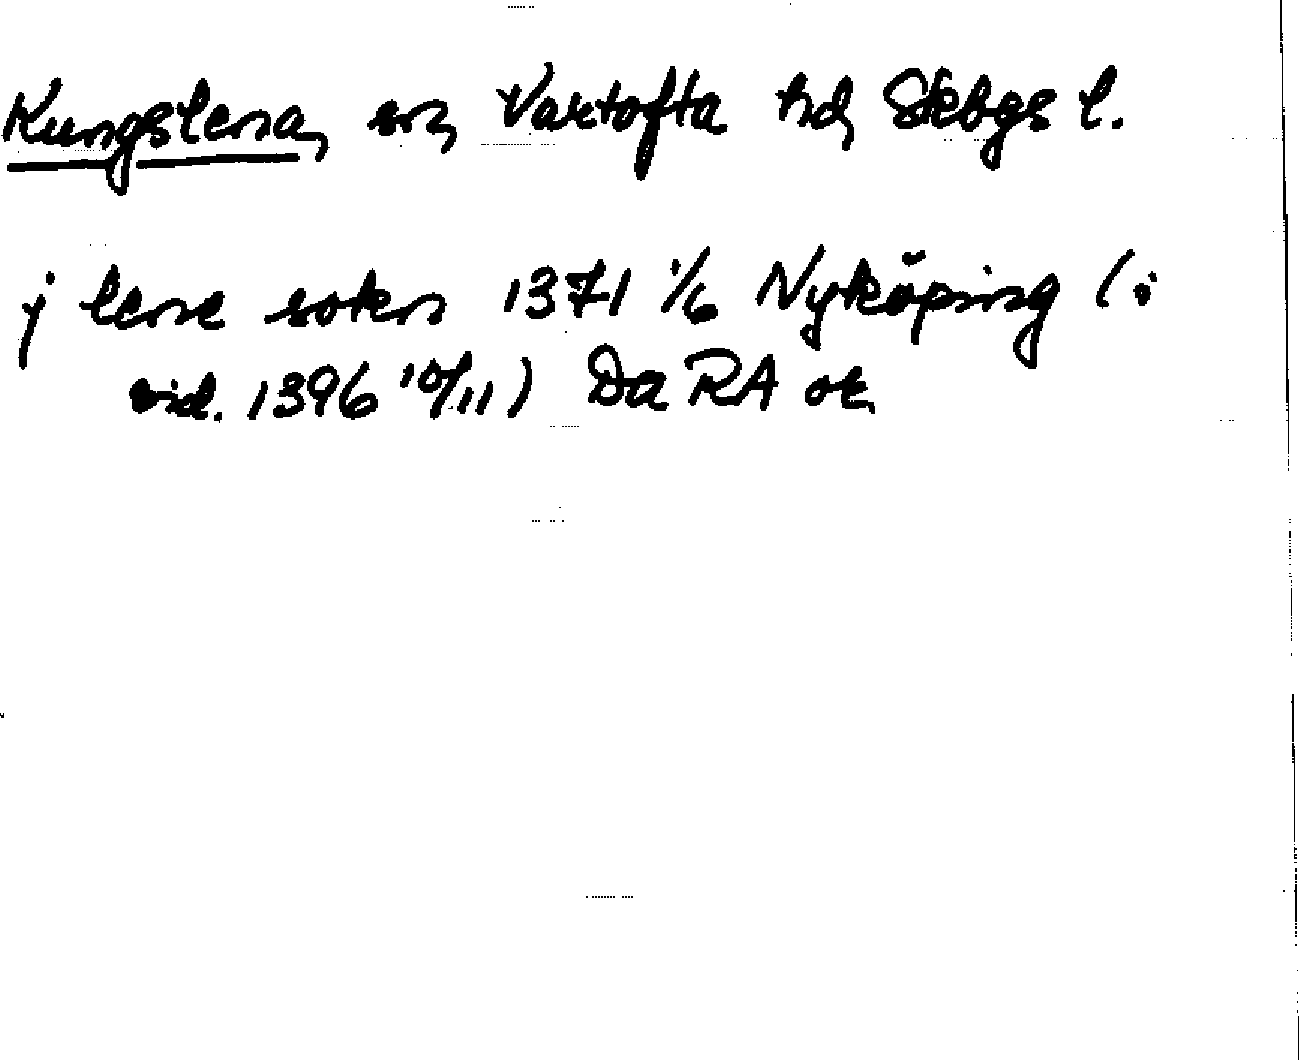 Kungslena, sn, Vartofta hd, Skbgs l.
j lene sokn 1371 1/6 Nyköping (i
vid. 1396 10/11) Da RA or.